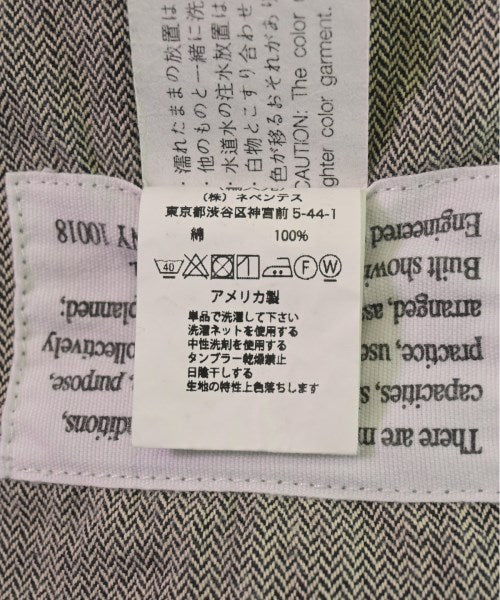 ・濡れたままの放置は
・他のものと一緒に洗
・水道水の注水放置は
・白物とこすり合わせ
色が移るおそれがあり
CAUTION: The color
ghter color garment.
(株) ネペンテス
東京都渋谷区神宮前 5-44-1
綿 100%
40
F
W
アメリカ製
単品で洗濯して下さい
洗濯ネットを使用する
中性洗剤を使用する
タンブラー乾燥禁止
日陰干しする
生地の特性上色落ちします
There are m
nditions,
capacities, s
, purpose,
practice, use
ollectively
arranged, ass
planned,
Built showi
Engineered
NY 10018